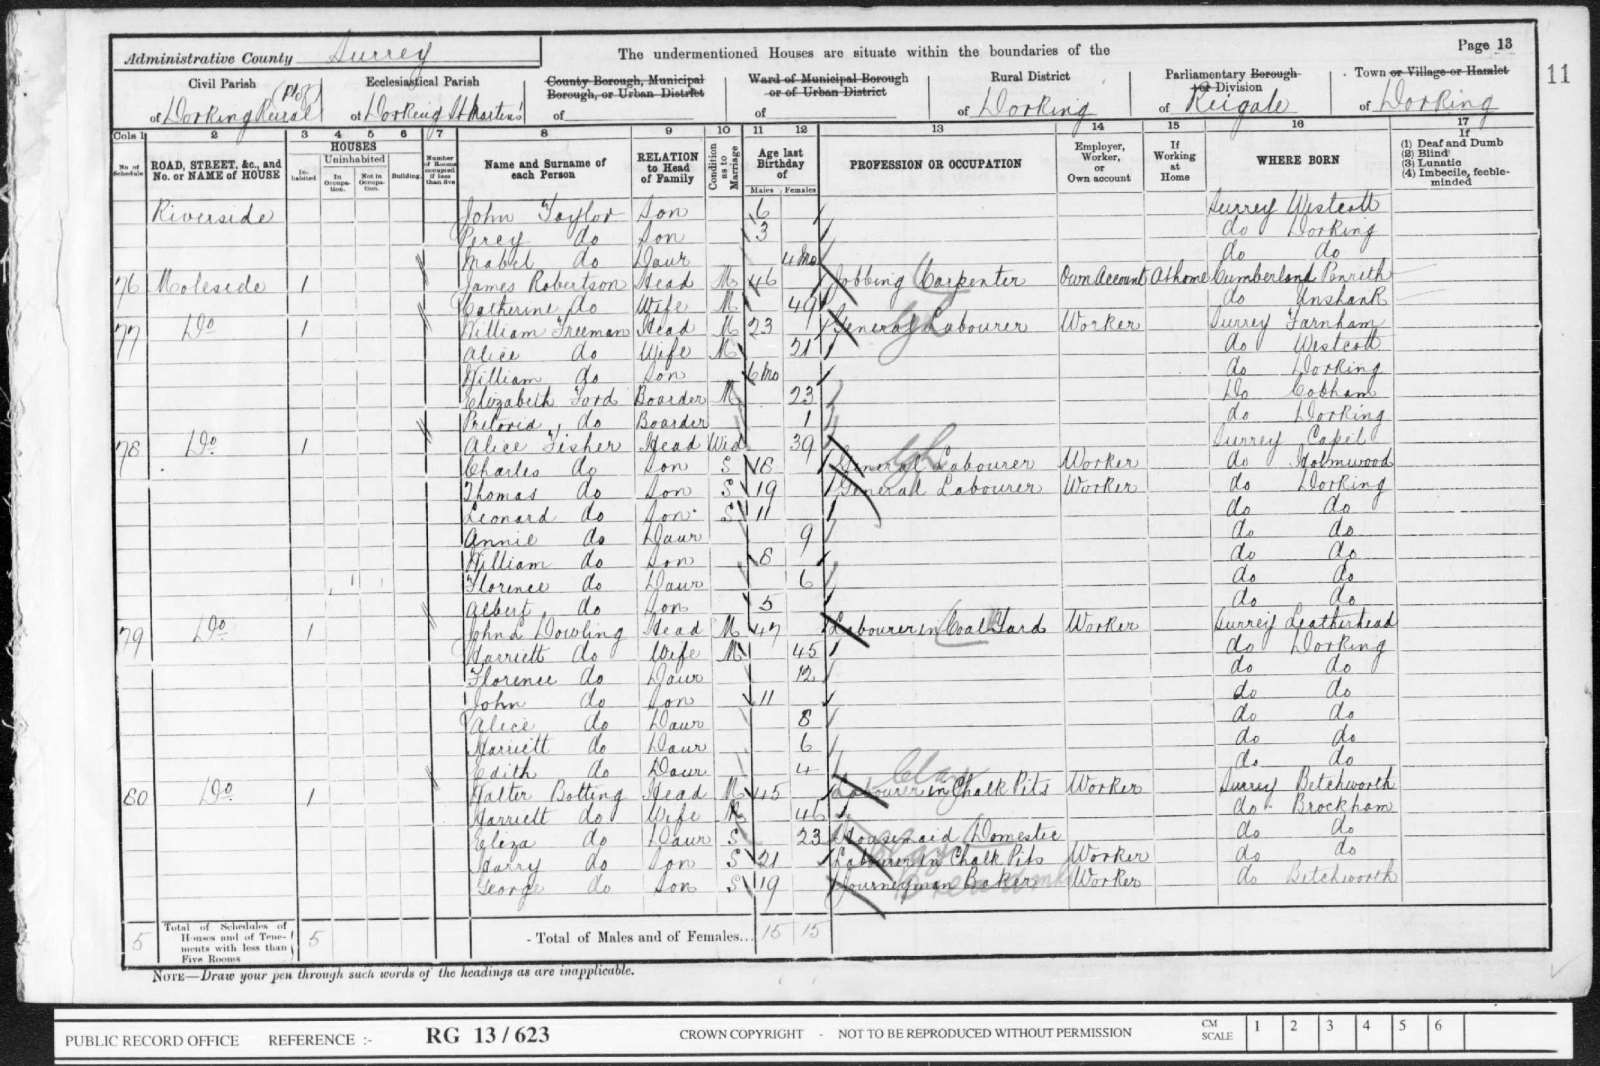 Administrative County Surrey
The undermentioned Houses are situate within the boundaries of the
Page 13
11
Civil Parish
of Dorking Rural (Pt of)
Ecclesiastical Parish
of Dorking St Martins
County Borough, Municipal Borough, or Urban District
of
Ward of Municipal Borough or of Urban District
of
Rural District
of Dorking
Parliamentary Borough or Division
of Reigate
Town or Village or Hamlet
of Dorking
Cols 1 2 3 4 5 6 7 8 9 10 11 12 13 14 15 16 17
No. of Schedule
ROAD, STREET, &c., and No. or NAME of HOUSE
HOUSES
Inhabited
Uninhabited
In Occupation.
Not in Occupation.
Building.
Number of Rooms occupied if less than five
Name and Surname of each Person
RELATION to Head of Family
Condition as to Marriage
Age last Birthday of
Males Females
PROFESSION OR OCCUPATION
Employer, Worker, or Own account
If Working at Home
WHERE BORN
If
(1) Deaf and Dumb
(2) Blind
(3) Lunatic
(4) Imbecile, feeble-minded
Riverside John Taylor Son 6 Surrey Westcott
Percy do Son 3 do Dorking
Mabel do Daur 4 Mo do do
76 Moleside 1 James Robertson Head M 46 Jobbing Carpenter Own Account At home Cumberland Penrith
Catherine do Wife M 49 do Unshank
77 Do 1 William Freeman Head M 23 General Labourer Worker Surrey Farnham
Alice do Wife M 21 do Westcott
William do Son 6 Mo do Dorking
Elizabeth Ford Boarder M 23 Do Cobham
Pretoria do Boarder 1 do Dorking
78 Do 1 Alice Fisher Head Wid 39 Surrey Capel
Charles do Son S 18 General Labourer Worker do Holmwood
Thomas do Son S 19 General Labourer Worker do Dorking
Leonard do Son S 11 do do
Annie do Daur 9 do do
William do Son 8 do do
Florence do Daur 6 do do
Albert do Son 5 do do
79 Do 1 John L Dowling Head M 47 Labourer in Coal Yard Worker Surrey Leatherhead
Harriett do Wife M 45 do Dorking
Florence do Daur 12 do do
John do Son 11 do do
Alice do Daur 8 do do
Harriett do Daur 6 do do
Edith do Daur 4 do do
80 Do 1 Walter Botting Head M 45 Labourer in Chalk Pits Worker Surrey Betchworth
Harriett do Wife M 46 do Brockham
Eliza do Daur S 23 Housemaid Domestic do do
Harry do Son S 21 Labourer in Chalk Pits Worker do do
George do Son S 19 Journeyman Baker Worker do Betchworth
5 Total of Schedules of Houses and of Tenements with less than Five Rooms 5 Total of Males and of Females... 15 15
NOTE—Draw your pen through such words of the headings as are inapplicable.
PUBLIC RECORD OFFICE REFERENCE :- RG 13 / 623 CROWN COPYRIGHT - NOT TO BE REPRODUCED WITHOUT PERMISSION CM SCALE 1 2 3 4 5 6